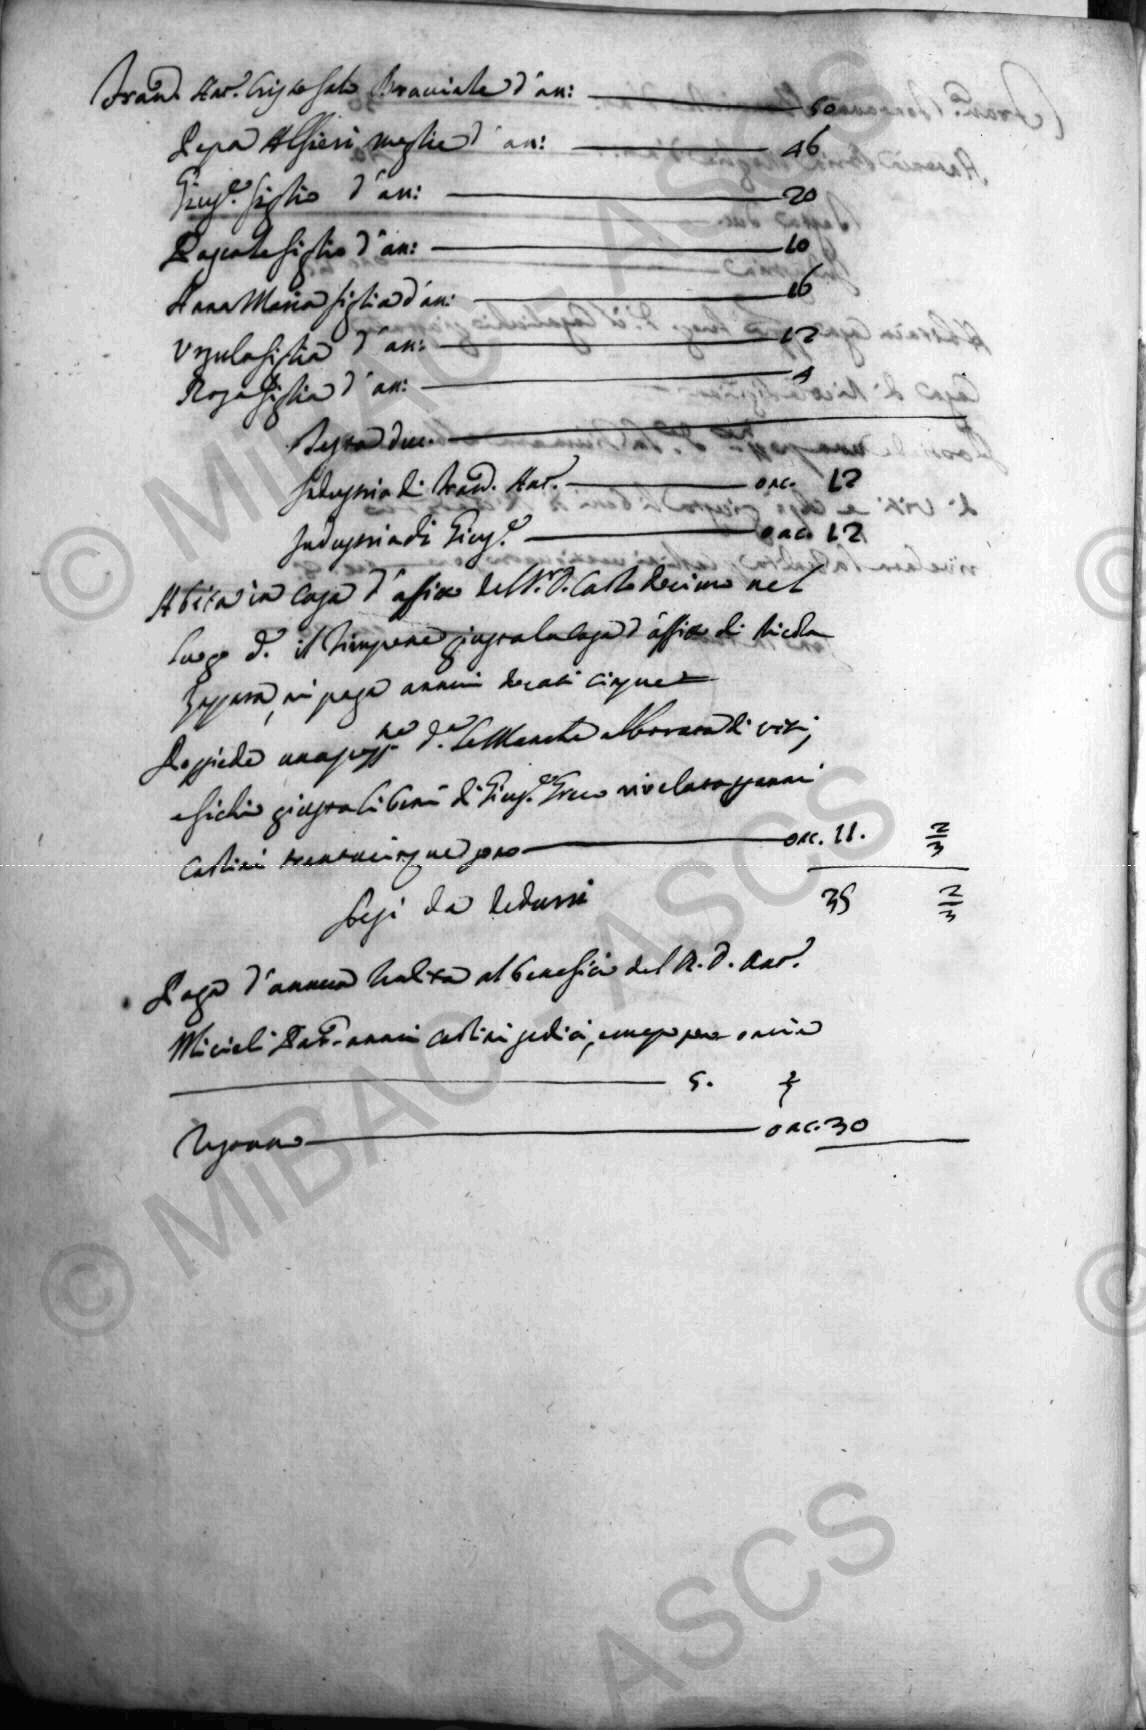 Fran.co Ant.o Cristofalo Bracciale d'an: 50
Pepa Alfieri moglie d'an: 46
Gius.e figlio d'an: 20
Pasquale figlio d'an: 10
Anna Maria figlia d'an: 16
Orsula figlia d'an: 12
Rosa figlia d'an: 4
Testa duc.
Industria di Fran.co Ant.o onc. 12
Industria di Gius.e onc. 12
Abita in casa d'affitto del R. D. Carlo Decimo nel
luogo d.o il Timpone giusta la casa d'affitto di Nicola
ne paga annui docati cinque
Possiede una poss.ne d.a le Manche alborata di viti,
e fichi giusta li beni di Gius.e Greco rivelata annui
carlini trentacinque sono onc. 11. 2/3
Pesi da dedursi 35 2/3
Paga d'annua al beneficio del R. D. Ant.o
Micieli annui carlini sedici, oncie
5. 
Restano onc. 30
© MiBAC - ASCS
© MiBAC - ASCS
ASCS